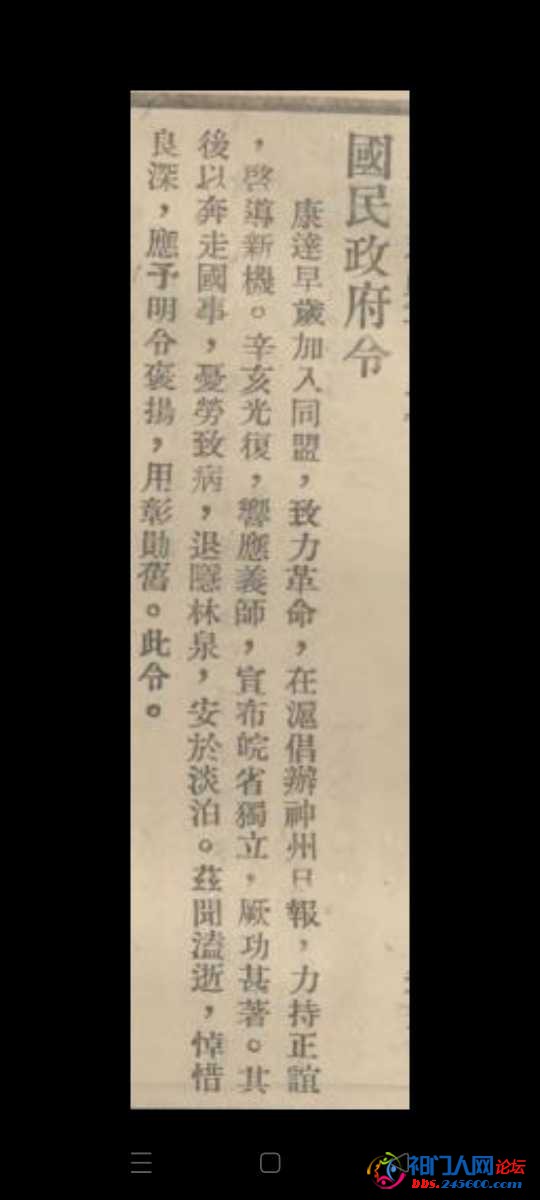 國民政府令
康達早歲加入同盟，致力革命，在滬倡辦神州日報，力持正誼
，啓導新機。辛亥光復，響應義師，宣布皖省獨立，厥功甚著。其
後以奔走國事，憂勞致病，退隱林泉，安於淡泊。茲聞溘逝，悼惜
良深，應予明令褒揚，用彰勛舊。此令。
祁门人网论坛
bbs.245600.com